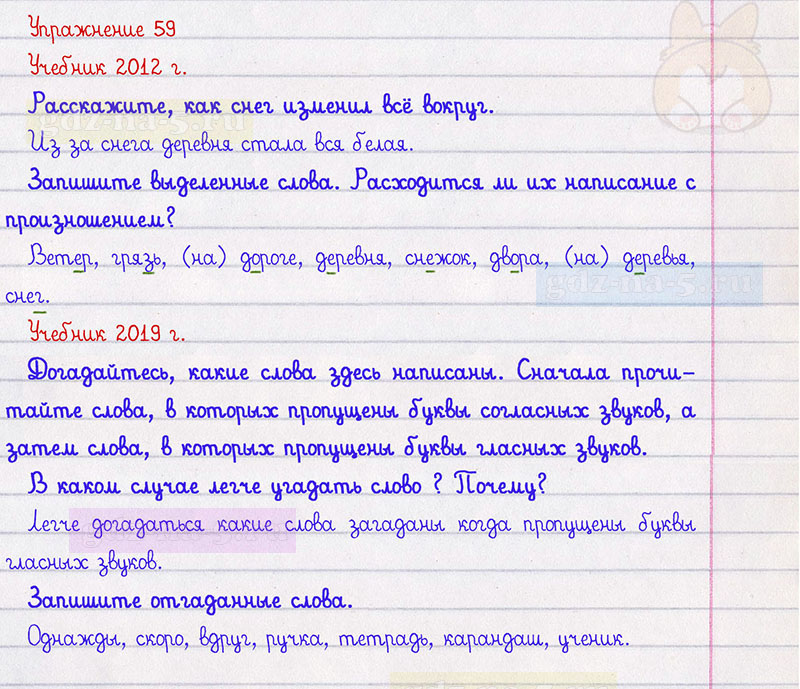 Упражнение 59
Учебник 2012 г.
Расскажите, как снег изменил всё вокруг.
Из за снега деревня стала вся белая.
Запишите выделенные слова. Расходится ли их написание с
произношением?
Ветер, грязь, (на) дороге, деревня, снежок, двора, (на) деревья,
снег.
gdz-na-5.ru
Учебник 2019 г.
Догадайтесь, какие слова здесь написаны. Сначала прочи-
тайте слова, в которых пропущены буквы согласных звуков, а
затем слова, в которых пропущены буквы гласных звуков.
В каком случае легче угадать слово ? Почему?
Легче догадаться какие слова загаданы когда пропущены буквы
гласных звуков.
Запишите отгаданные слова.
Однажды, скоро, вдруг, ручка, тетрадь, карандаш, ученик.